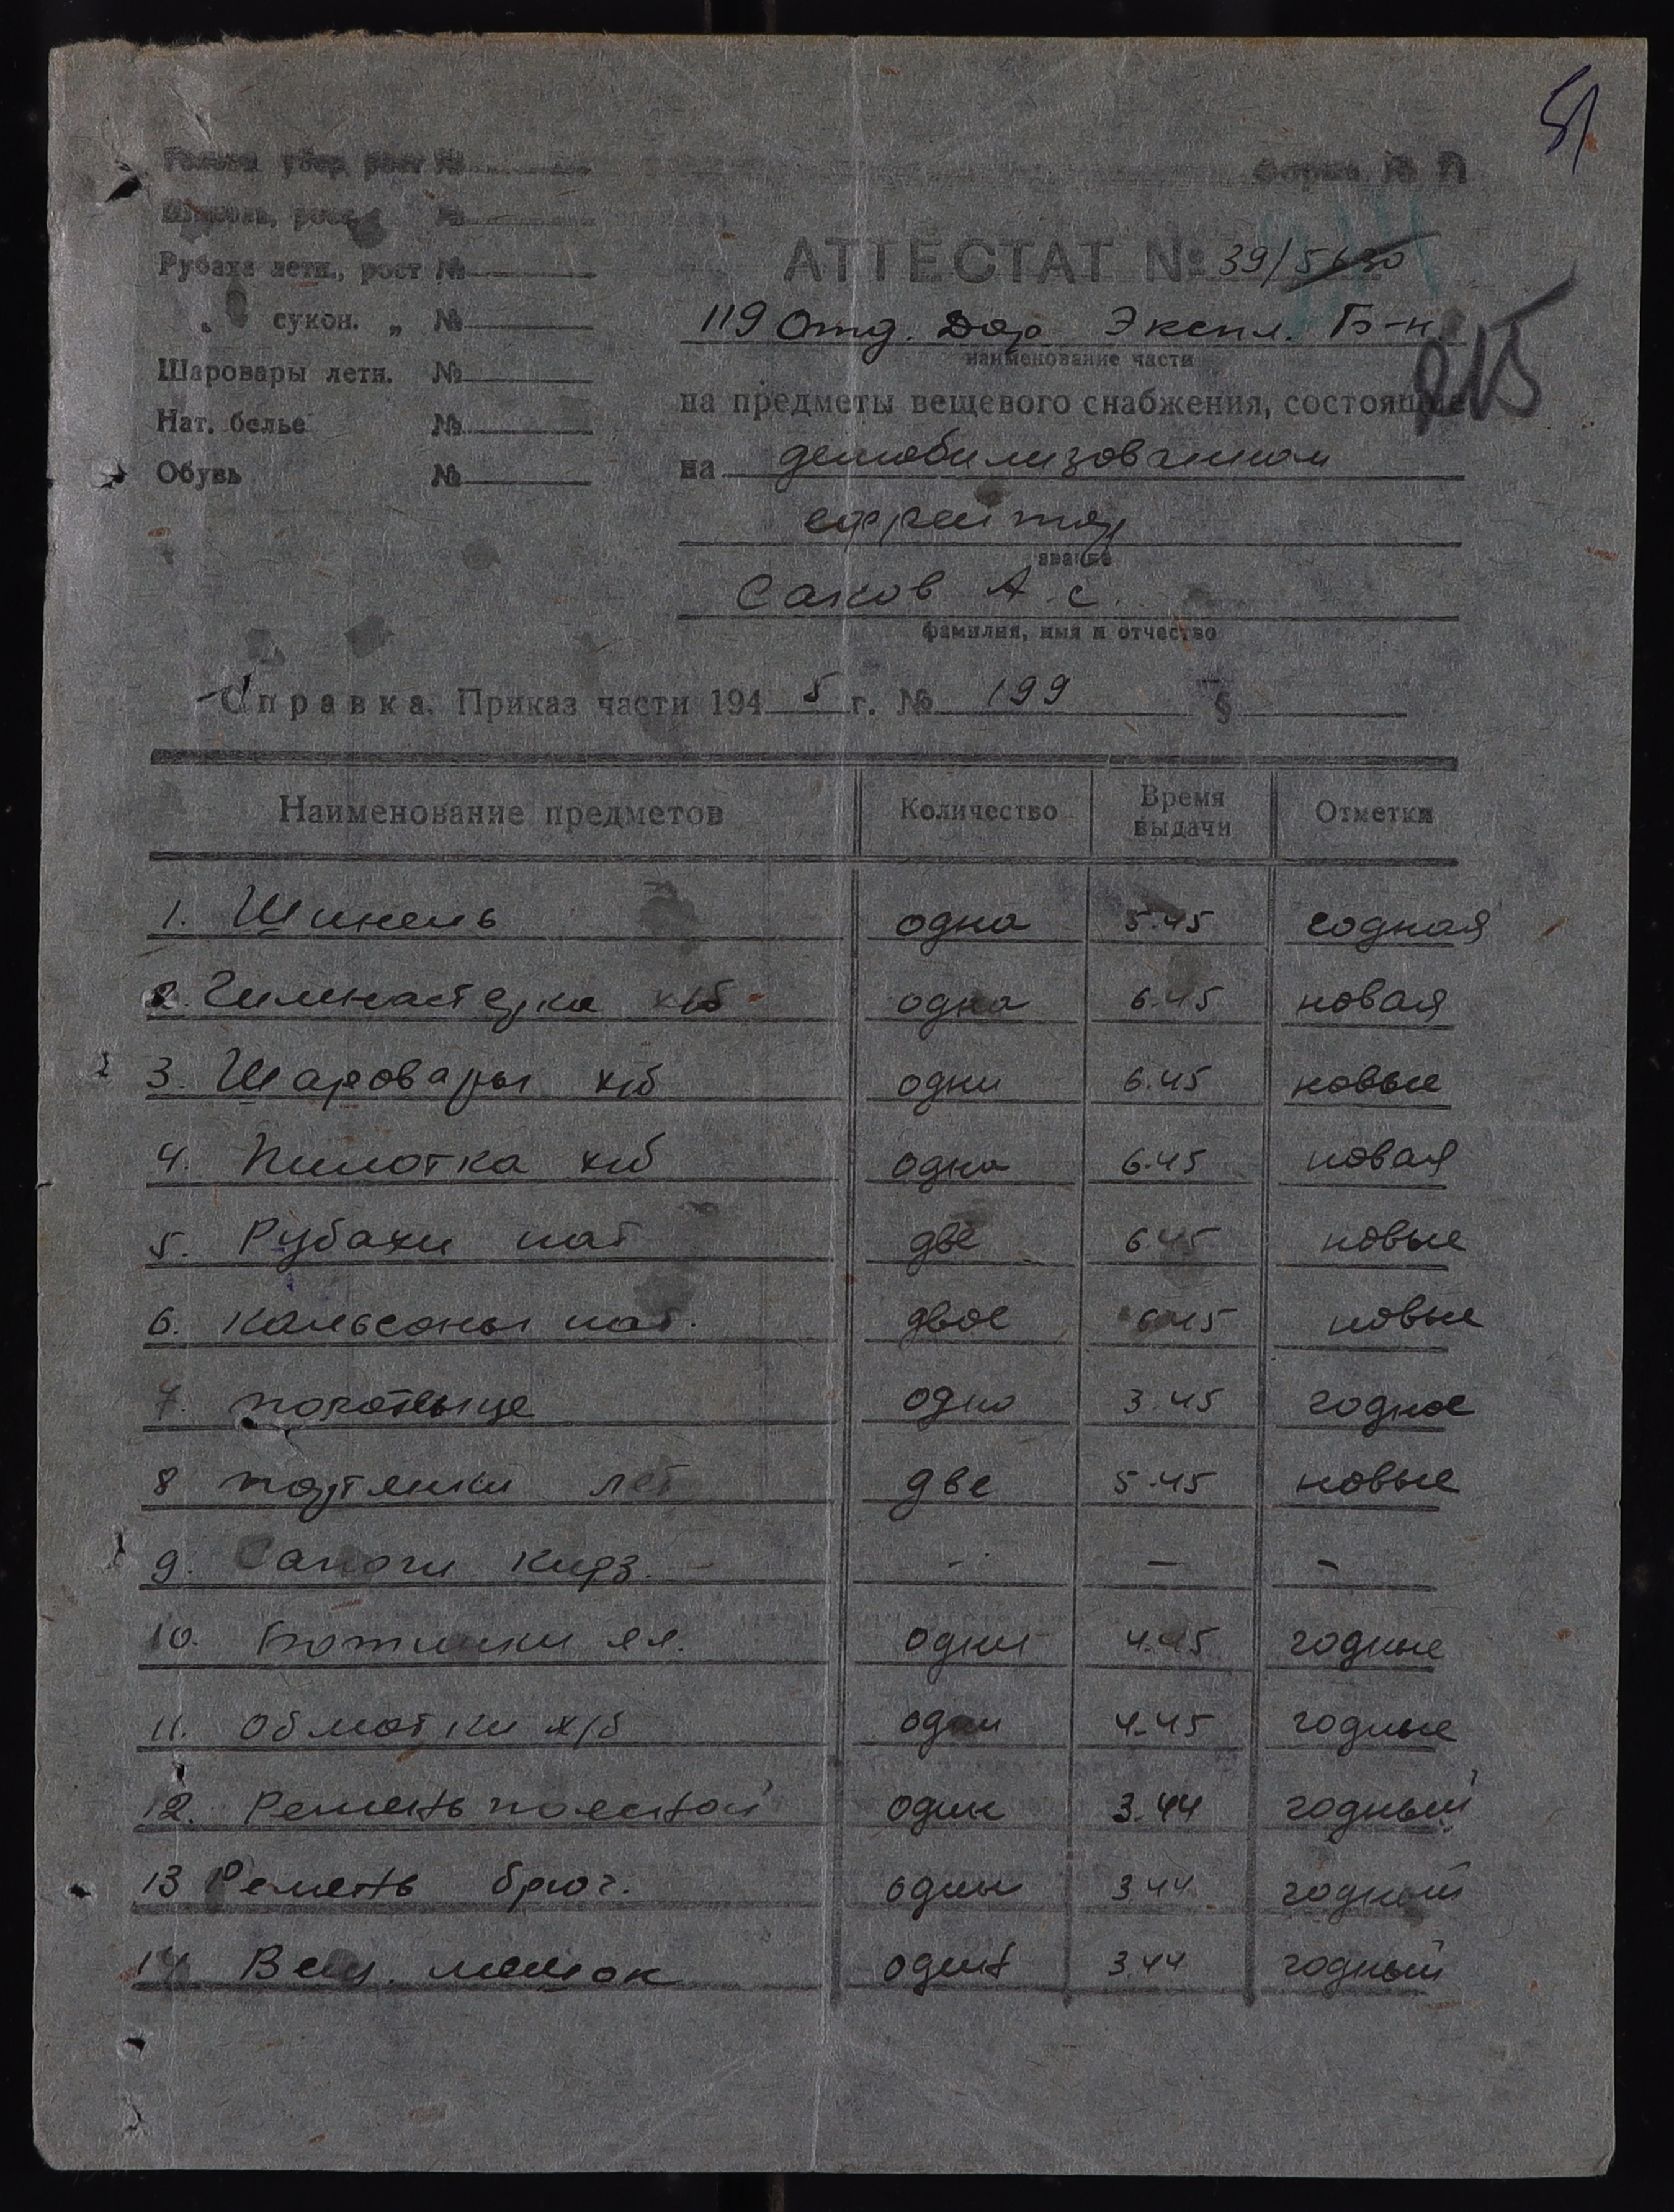 51
Головн. убор, рост №
Форма № П
Шинель, рост №
Рубаха летн., рост №
АТТЕСТАТ № 39/5630
„ сукон. „ №
119 Отд. Дор. Экспл. Б-н
наименование части
215
Шаровары летн. №
на предметы вещевого снабжения, состоящие
Нат. белье №
на демобилизованном
Обувь №
ефрейтор
звание
Саков А. С.
фамилия, имя и отчество
Справка. Приказ части 194 5 г. № 199 §
Наименование предметов Количество Время выдачи Отметки
1. Шинель одна 5.45 годная
2. Гимнастерка х/б одна 6.45 новая
3. Шаровары х/б одни 6.45 новые
4. Пилотка х/б одна 6.45 новая
5. Рубахи нат две 6.45 новые
6. Кальсоны нат. двое 6.45 новые
7. полотенце одно 3.45 годное
8 портянки лет две 5.45 новые
9. Сапоги кирз. - - - -
10. Ботинки одни 4.45 годные
11. Обмотки х/б одни 4.45 годные
12. Ремень поясной один 3.44 годный
13 Ремень брюч. один 3.44 годный
14 Вещ. мешок один 3.44 годный